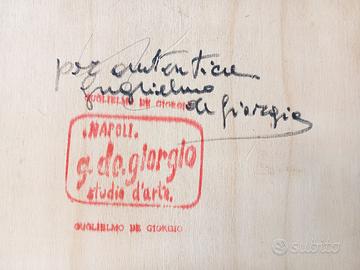 per autentica
guglielmo
de giorgio
GUGLIELMO DE GIORGIO
.NAPOLI.
g.de.giorgio
studio d'arte.
GUGLIELMO DE GIORGIO
subito